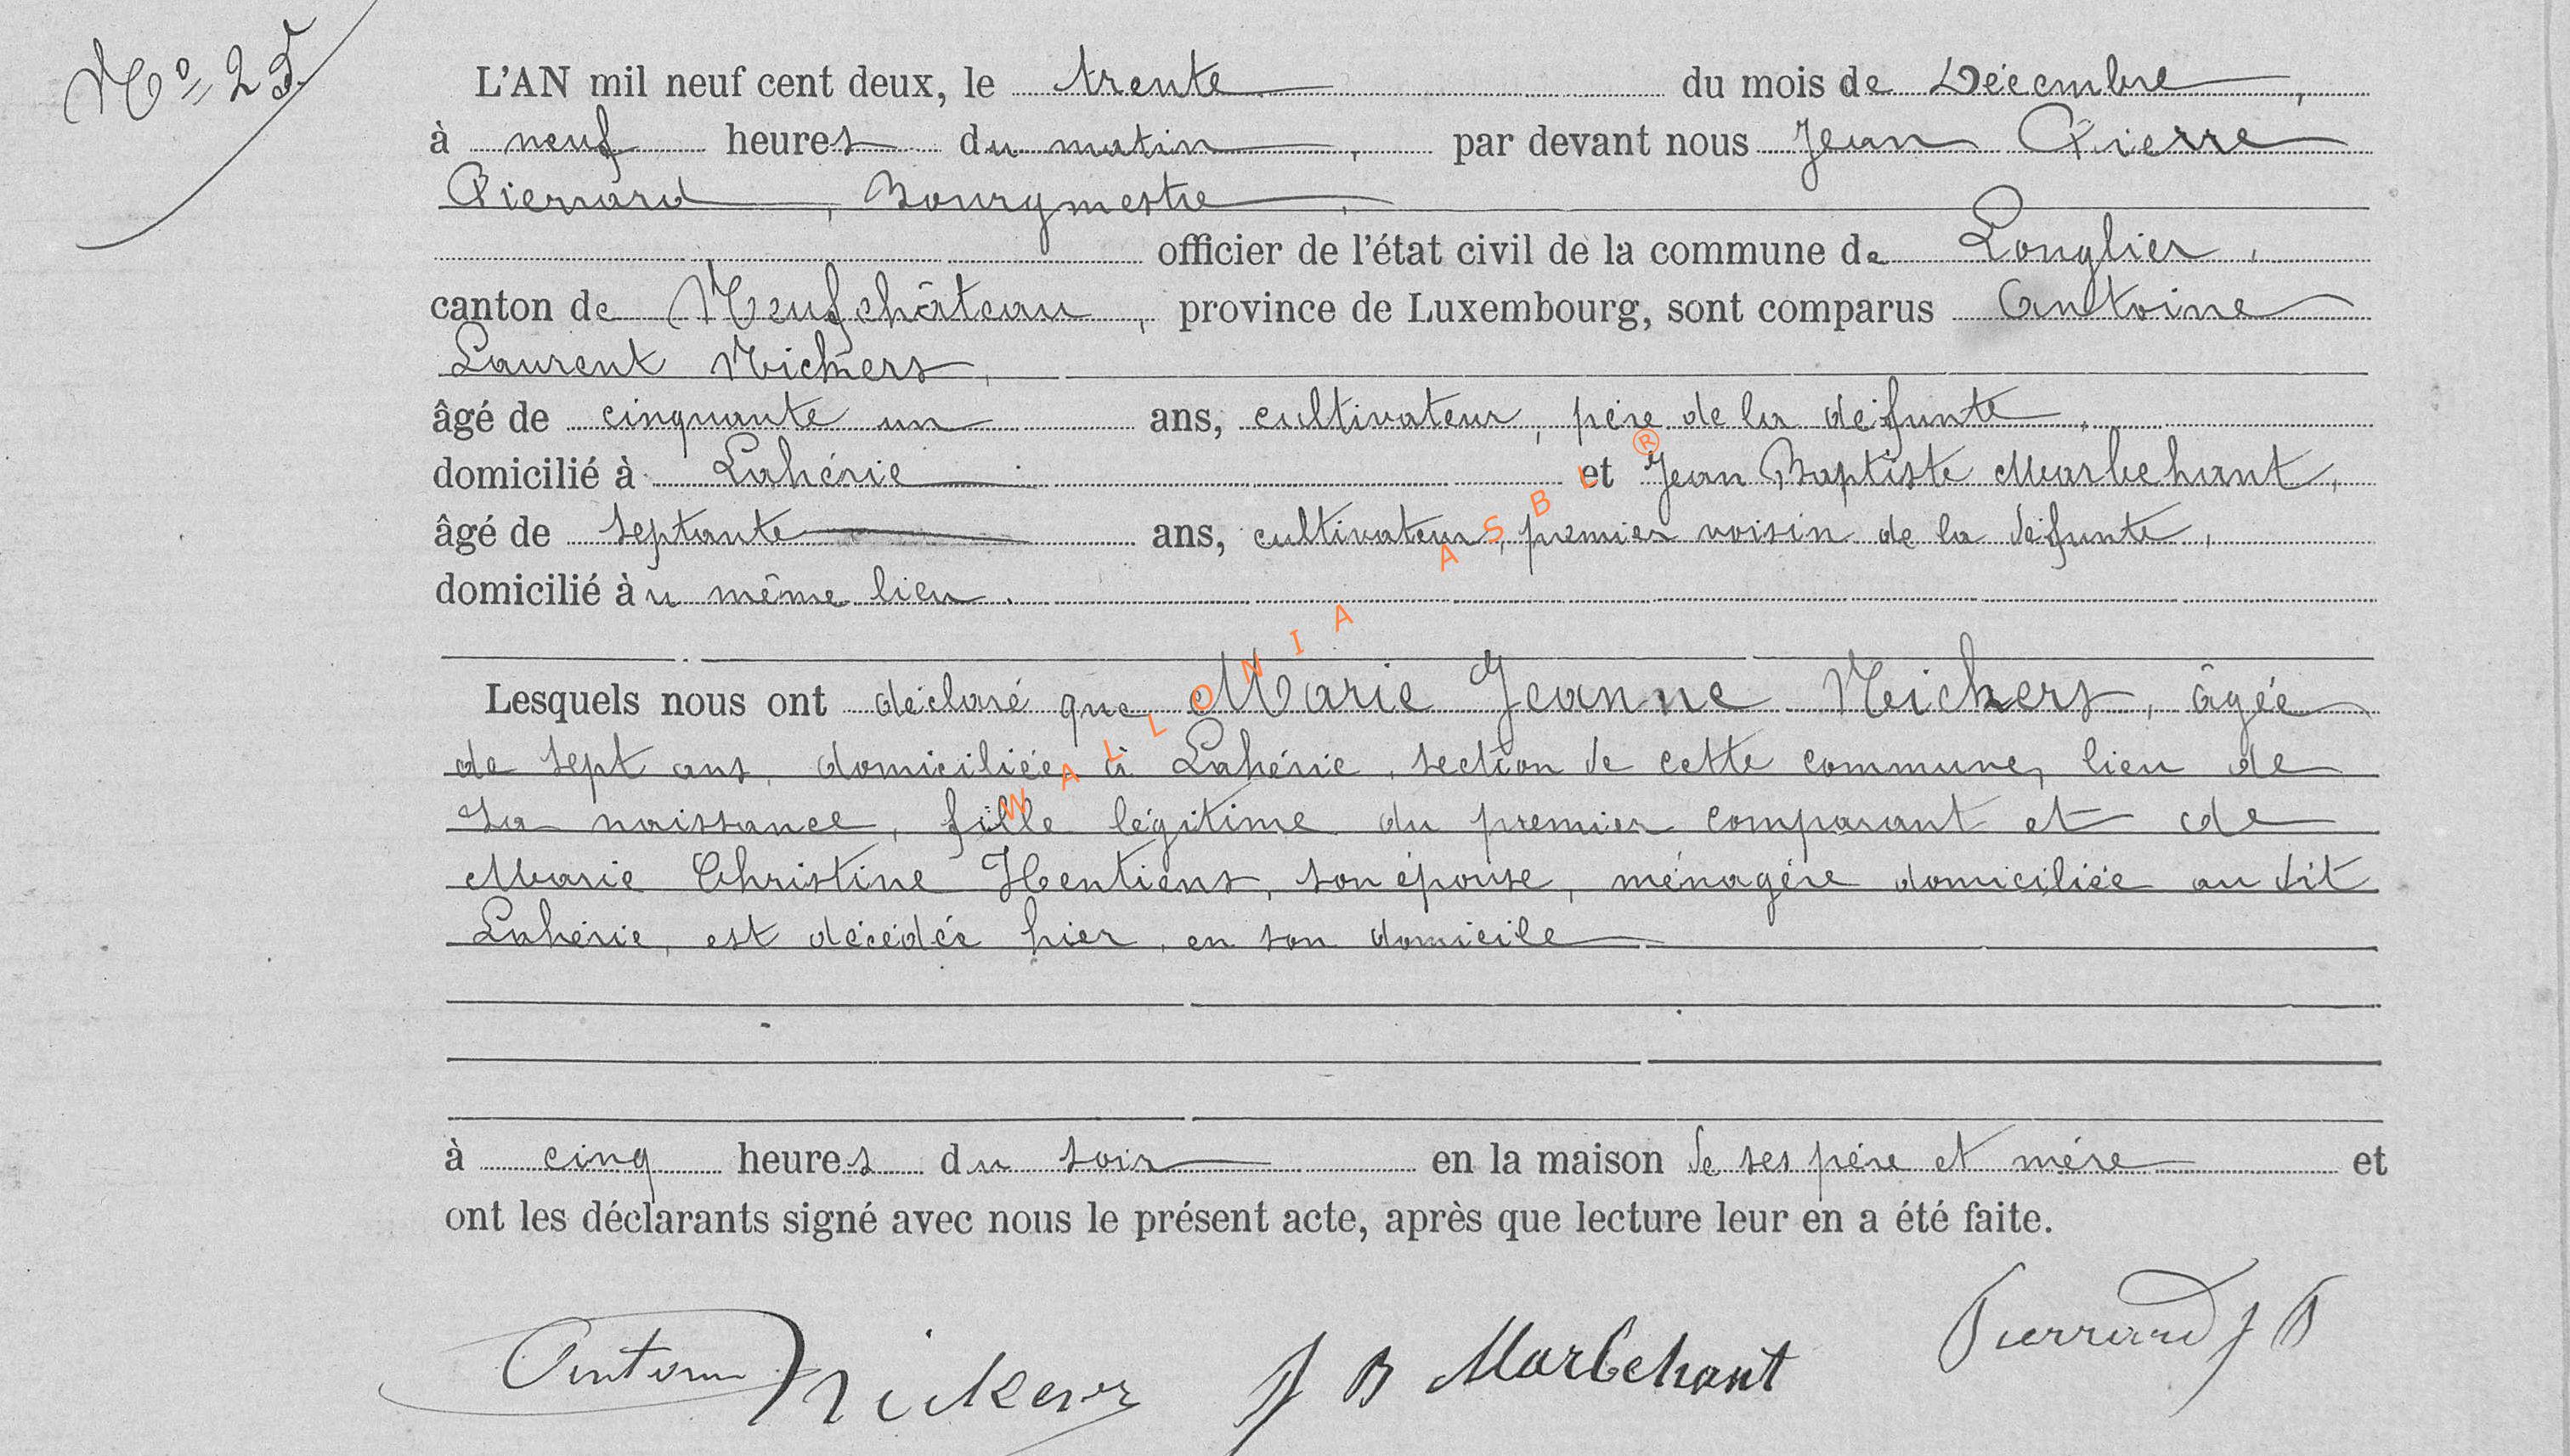 Nº 25.
L'AN mil neuf cent deux, le trente du mois de Décembre,
à neuf heures du matin, par devant nous Jean Pierre
Pierrard, Bourgmestre,
officier de l'état civil de la commune de Longlier,
canton de Neufchâteau, province de Luxembourg, sont comparus Antoine
Laurent Nickers,
âgé de cinquante un ans, cultivateur, père de la défunte,
domicilié à Lahérie et Jean Baptiste Marbehant,
âgé de septante ans, cultivateur, premier voisin de la défunte,
domicilié au même lieu.
Lesquels nous ont déclaré que Marie Jeanne Nickers, âgée
de sept ans, domiciliée à Lahérie, section de cette commune, lieu de
sa naissance, fille légitime du premier comparant et de
Marie Christine Hentiens, son épouse, ménagère domiciliée au dit
Lahérie, est décédée hier, en son domicile
à cinq heures du soir en la maison de ses père et mère et
ont les déclarants signé avec nous le présent acte, après que lecture leur en a été faite.
Nickers J B Marbehant Pierrard J P
WALLONIA ASBL ®